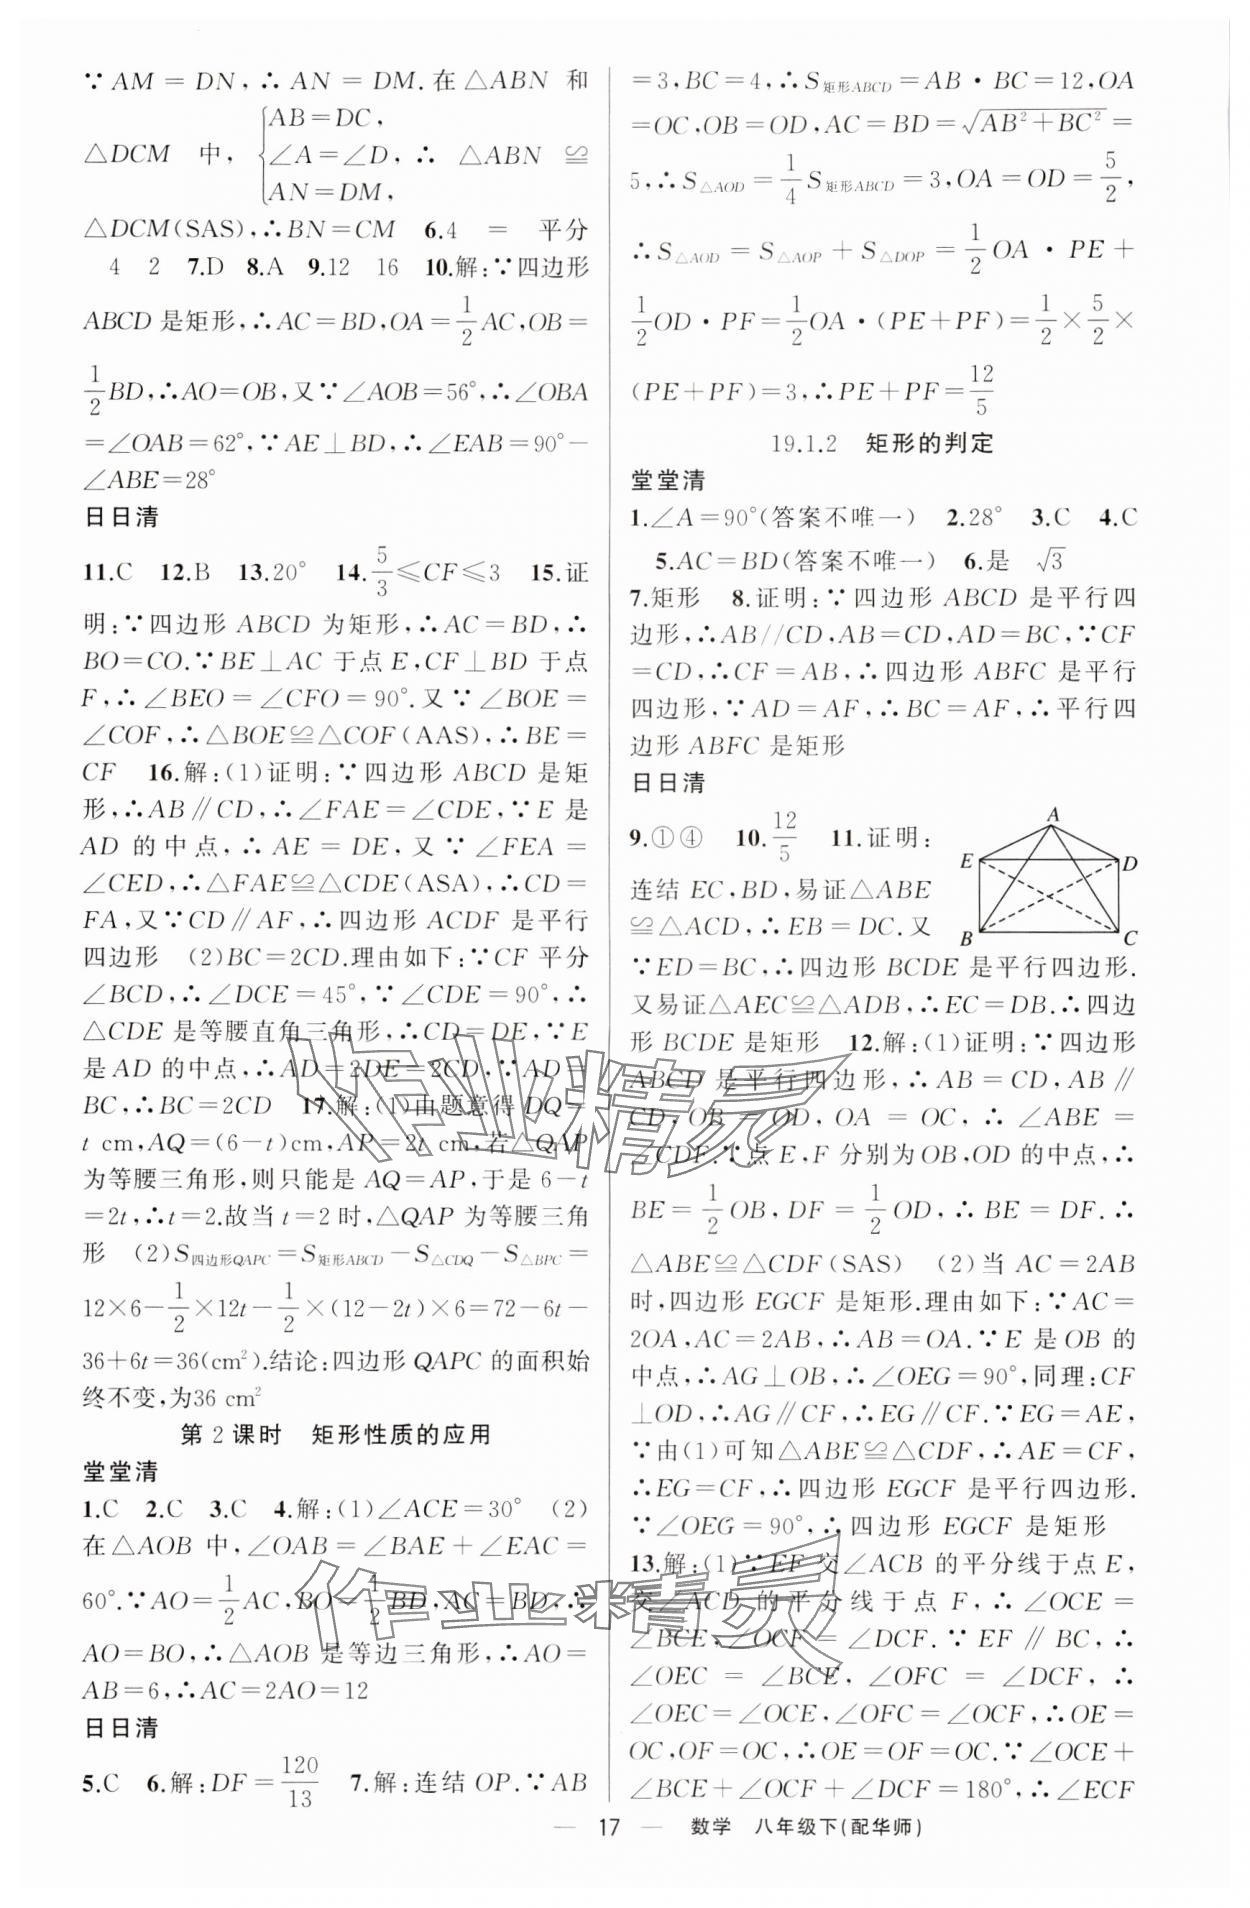 ∵AM=DN,∴AN=DM.在△ABN 和
△DCM 中,{AB=DC, ∠A=∠D, AN=DM, ∴△ABN≌
△DCM(SAS),∴BN=CM 6.4 = 平分
4 2 7.D 8.A 9.12 16 10.解:∵四边形
ABCD 是矩形,∴AC=BD,OA=1/2AC,OB=
1/2BD,∴AO=OB,又∵∠AOB=56°,∴∠OBA
=∠OAB=62°,∵AE⊥BD,∴∠EAB=90°-
∠ABE=28°
日日清
11.C 12.B 13.20° 14.5/3≤CF≤3 15.证
明:∵四边形 ABCD 为矩形,∴AC=BD,∴
BO=CO.∵BE⊥AC 于点 E,CF⊥BD 于点
F,∴∠BEO=∠CFO=90°.又∵∠BOE=
∠COF,∴△BOE≌△COF(AAS),∴BE=
CF 16.解:(1)证明:∵四边形 ABCD 是矩
形,∴AB∥CD,∴∠FAE=∠CDE,∵E 是
AD 的中点,∴AE=DE,又∵∠FEA=
∠CED,∴△FAE≌△CDE(ASA),∴CD=
FA,又∵CD∥AF,∴四边形 ACDF 是平行
四边形 (2)BC=2CD.理由如下:∵CF 平分
∠BCD,∴∠DCE=45°,∵∠CDE=90°,∴
△CDE 是等腰直角三角形,∴CD=DE,∵E
是 AD 的中点,∴AD=2DE=2CD,∵AD=
BC,∴BC=2CD 17.解:(1)由题意得 DQ=
t cm,AQ=(6-t)cm,AP=2t cm,若△QAP
为等腰三角形,则只能是 AQ=AP,于是 6-t
=2t,∴t=2.故当 t=2 时,△QAP 为等腰三角
形 (2)S四边形QAPC=S矩形ABCD-S△CDQ-S△BPC=
12×6-1/2×12t-1/2×(12-2t)×6=72-6t-
36+6t=36(cm²).结论:四边形 QAPC 的面积始
终不变,为36 cm²
第 2 课时 矩形性质的应用
堂堂清
1.C 2.C 3.C 4.解:(1)∠ACE=30° (2)
在△AOB 中,∠OAB=∠BAE+∠EAC=
60°.∵AO=1/2AC,BO=1/2BD,AC=BD,∴
AO=BO,∴△AOB 是等边三角形,∴AO=
AB=6,∴AC=2AO=12
日日清
5.C 6.解:DF=120/13 7.解:连结 OP.∵AB
=3,BC=4,∴S矩形ABCD=AB·BC=12,OA
=OC,OB=OD,AC=BD=√(AB²+BC²)=
5,∴S△AOD=1/4S矩形ABCD=3,OA=OD=5/2,
∴S△AOD=S△AOP+S△DOP=1/2OA·PE+
1/2OD·PF=1/2OA·(PE+PF)=1/2×5/2×
(PE+PF)=3,∴PE+PF=12/5
19.1.2 矩形的判定
堂堂清
1.∠A=90°(答案不唯一) 2.28° 3.C 4.C
5.AC=BD(答案不唯一) 6.是 √3
7.矩形 8.证明:∵四边形 ABCD 是平行四
边形,∴AB//CD,AB=CD,AD=BC,∵CF
=CD,∴CF=AB,∴四边形 ABFC 是平行
四边形,∵AD=AF,∴BC=AF,∴平行四
边形 ABFC 是矩形
日日清
9.①④ 10.12/5 11.证明:
连结 EC,BD,易证△ABE
≌△ACD,∴EB=DC.又
A
E D
B C
∵ED=BC,∴四边形 BCDE 是平行四边形.
又易证△AEC≌△ADB,∴EC=DB.∴四边
形 BCDE 是矩形 12.解:(1)证明:∵四边形
ABCD 是平行四边形,∴AB=CD,AB∥
CD,OB=OD,OA=OC,∴∠ABE=
∠CDF.∵点 E,F 分别为OB,OD 的中点,∴
BE=1/2OB,DF=1/2OD,∴BE=DF.∴
△ABE≌△CDF(SAS) (2)当 AC=2AB
时,四边形 EGCF 是矩形.理由如下:∵AC=
2OA,AC=2AB,∴AB=OA.∵E 是 OB 的
中点,∴AG⊥OB,∴∠OEG=90°,同理:CF
⊥OD,∴AG∥CF,∴EG∥CF.∵EG=AE,
∵由(1)可知△ABE≌△CDF,∴AE=CF,
∴EG=CF,∴四边形 EGCF 是平行四边形.
∵∠OEG=90°,∴四边形 EGCF 是矩形
13.解:(1)∵EF 交∠ACB 的平分线于点 E,
交∠ACD 的平分线于点 F,∴∠OCE=
∠BCE,∠OCF=∠DCF.∵EF∥BC,∴
∠OEC=∠BCE,∠OFC=∠DCF,∴
∠OEC=∠OCE,∠OFC=∠OCF,∴OE=
OC,OF=OC,∴OE=OF=OC.∵∠OCE+
∠BCE+∠OCF+∠DCF=180°,∴∠ECF
作业精灵
作业精灵
— 17 — 数学 八年级下(配华师)